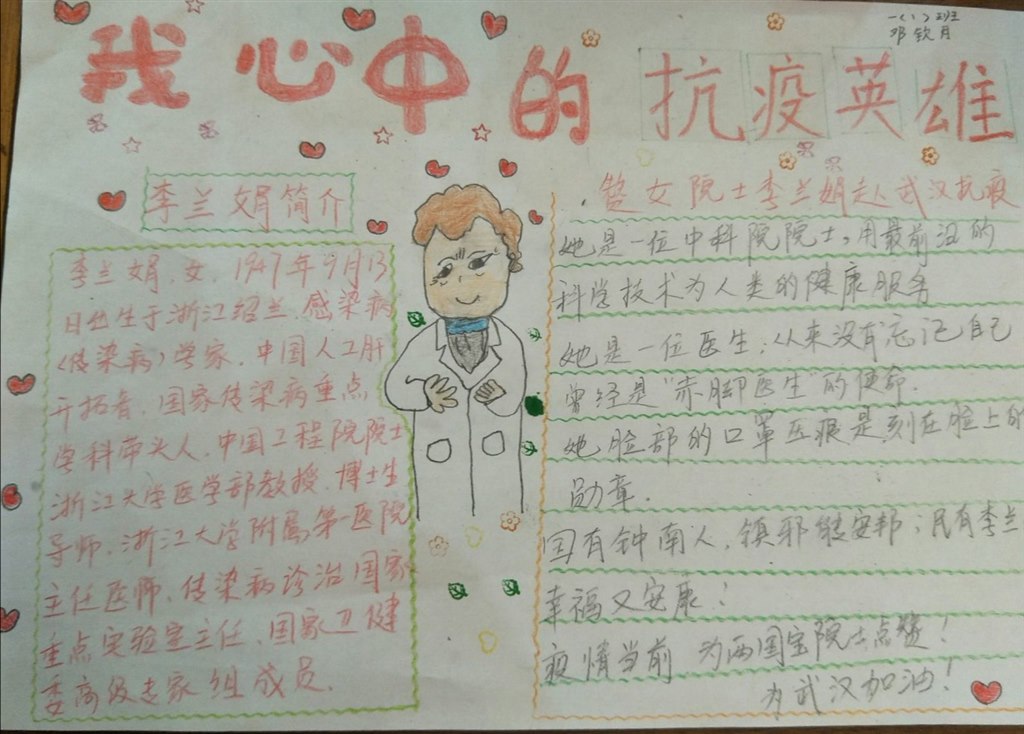 一(1)班
邓钦月
我心中的抗疫英雄
李兰娟简介
李兰娟.女.1947年9月13
日出生于浙江绍兴.感染病
(传染病)学家.中国人工肝
开拓者.国家传染病重点
学科带头人.中国工程院院士
浙江大学医学部教授.博士生
导师.浙江大学附属第一医院
主任医师.传染病诊治国家
重点实验室主任.国家卫健
委高级专家组成员.
女院士李兰娟赴武汉抗疫
她是一位中科院院士,用最前沿的
科学技术为人类的健康服务
她是一位医生;从来没有忘记自己
曾经是“赤脚医生”的使命.
她脸部的口罩压痕是刻在脸上的
勋章.
国有钟南人.镇邪能安邦;民有李兰
幸福又安康!
疫情当前 为两国宝院士点赞!
为武汉加油!